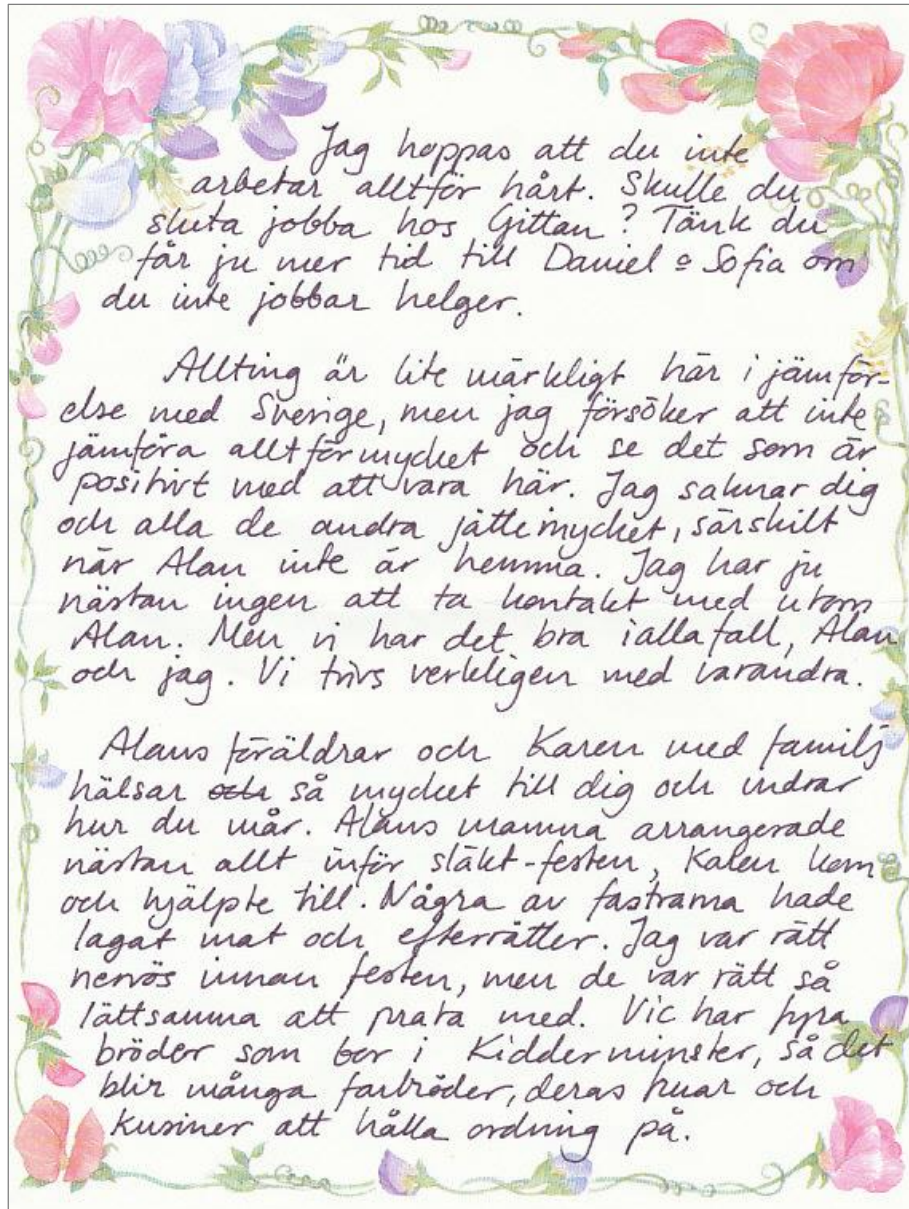 Jag hoppas att du inte
arbetar alltför hårt. Skulle du
sluta jobba hos Gittan? Tänk du
får ju mer tid till Daniel o Sofia om
du inte jobbar helger.
Allting är lite märkligt här i jämför-
else med Sverige, men jag försöker att inte
jämföra alltför mycket och se det som är
positivt med att vara här. Jag saknar dig
och alla de andra jättemycket, särskilt
när Alan inte är hemma. Jag har ju
nästan ingen att ta kontakt med utom
Alan. Men vi har det bra iallafall, Alan
och jag. Vi trivs verkligen med varandra.
Alans föräldrar och Karen med familj
hälsar och så mycket till dig och undrar
hur du mår. Alans mamma arrangerade
nästan allt inför släkt-festen, Karen kom
och hjälpte till. Några av fastrarna hade
lagat mat och efterrätter. Jag var rätt
nervös innan festen, men de var rätt så
lättsamma att prata med. Vic har fyra
bröder som bor i Kidderminster, så det
blir många farbröder, deras fruar och
kusiner att hålla ordning på.